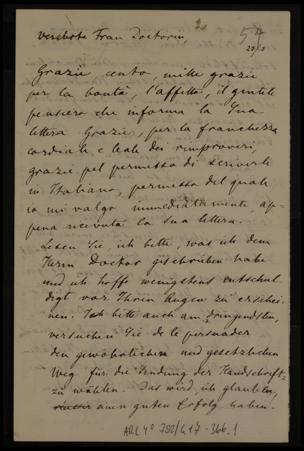 2
54
29/3
verehrte Frau Doctorin,
Grazie cento, mille grazie
per la bontà, l'affetto, il gentile
pensiero che informa la Sua
lettera. Grazie, per la franchezza
cordiale e leale dei rimproveri,
grazie pel permesso di scriverle
in Italiano, permesso del quale
io mi valgo immediatamente ap-
pena ricevuta la sua lettera.
Lesen Sie, ich bitte, was ich dem
Herrn Doctor geschrieben habe
und ich hoffe wenigstens entschul-
digt vor Ihren Augen zu erschei-
nen. Ich bitte auch am dringendsten,
versuchen Sie de le persuader
den gewöhnlichen und gesetzlichen
Weg für die Sendung der Handschrift
zu wählen. Das wird, ich glaube,
einen guten Erfolg haben.
ARC 4º 788/417-366.1